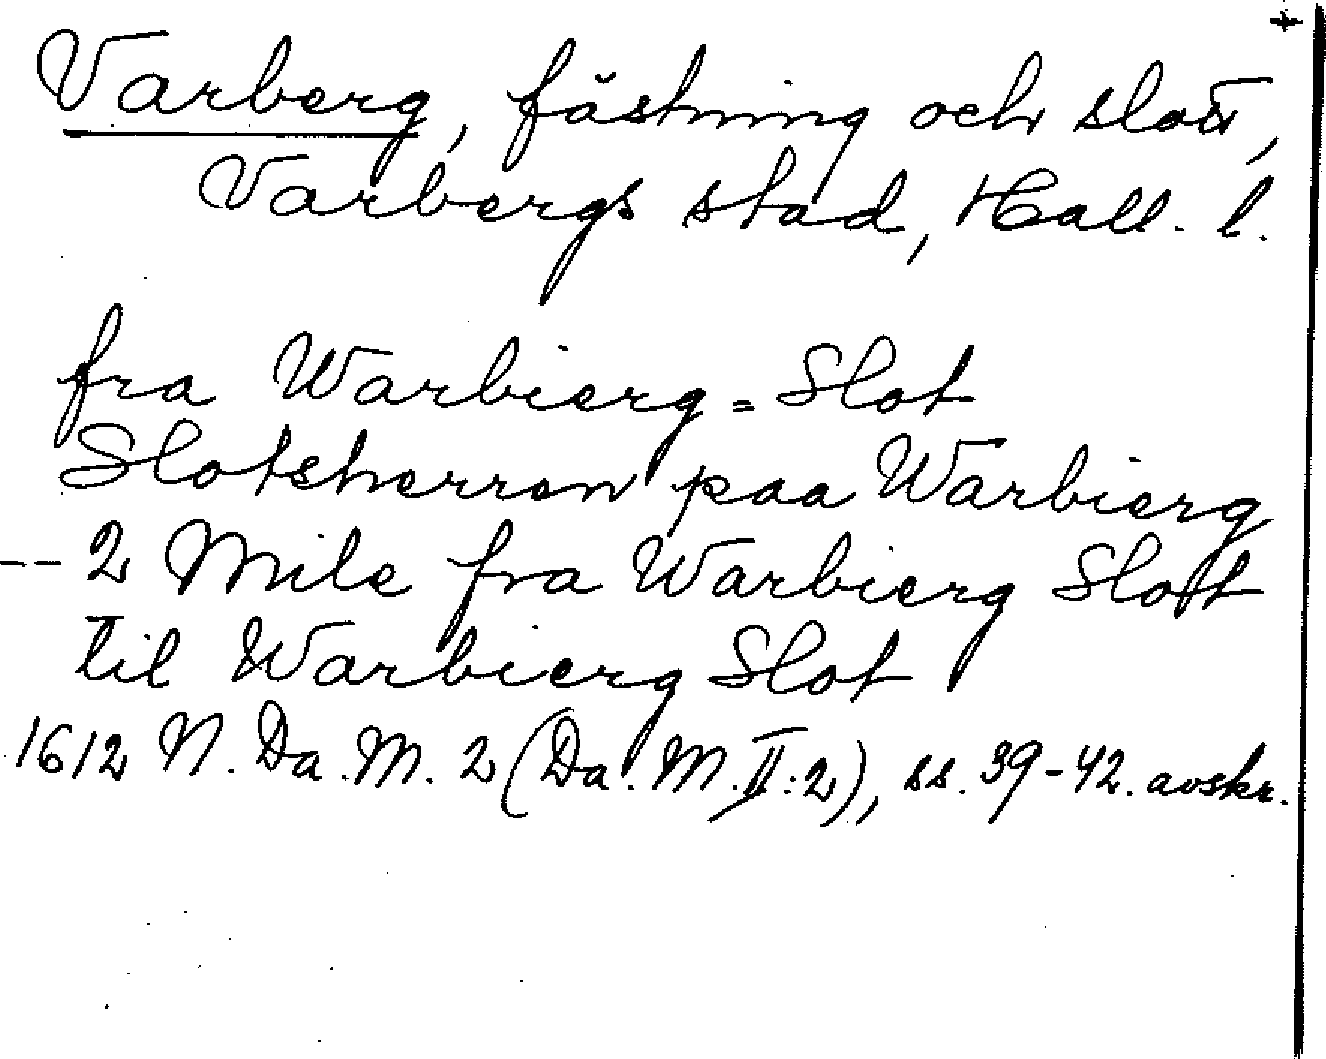 +
Varberg, fästning och slott,
Varbergs stad, Hall. l.
fra Warbierg=Slot
Slotsherren paa Warbierg
-- 2 Mile fra Warbierg Slott
til Warbierg Slot
1612 N. Da. M. 2 (Da. M. II:2), ss. 39-42. avskr.